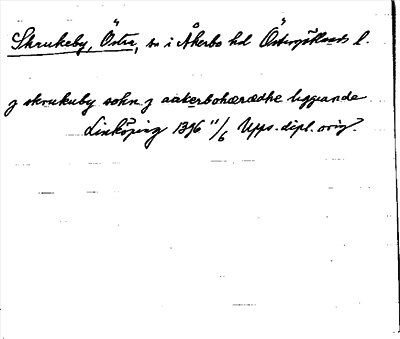 Skrukeby, Östra, sn i Åkerbo hd Östergötlands l.
j skrukuby sokn j aakerbohæredhe liggiande
Linköping 1396 11/6 Upps. dipl. orig.